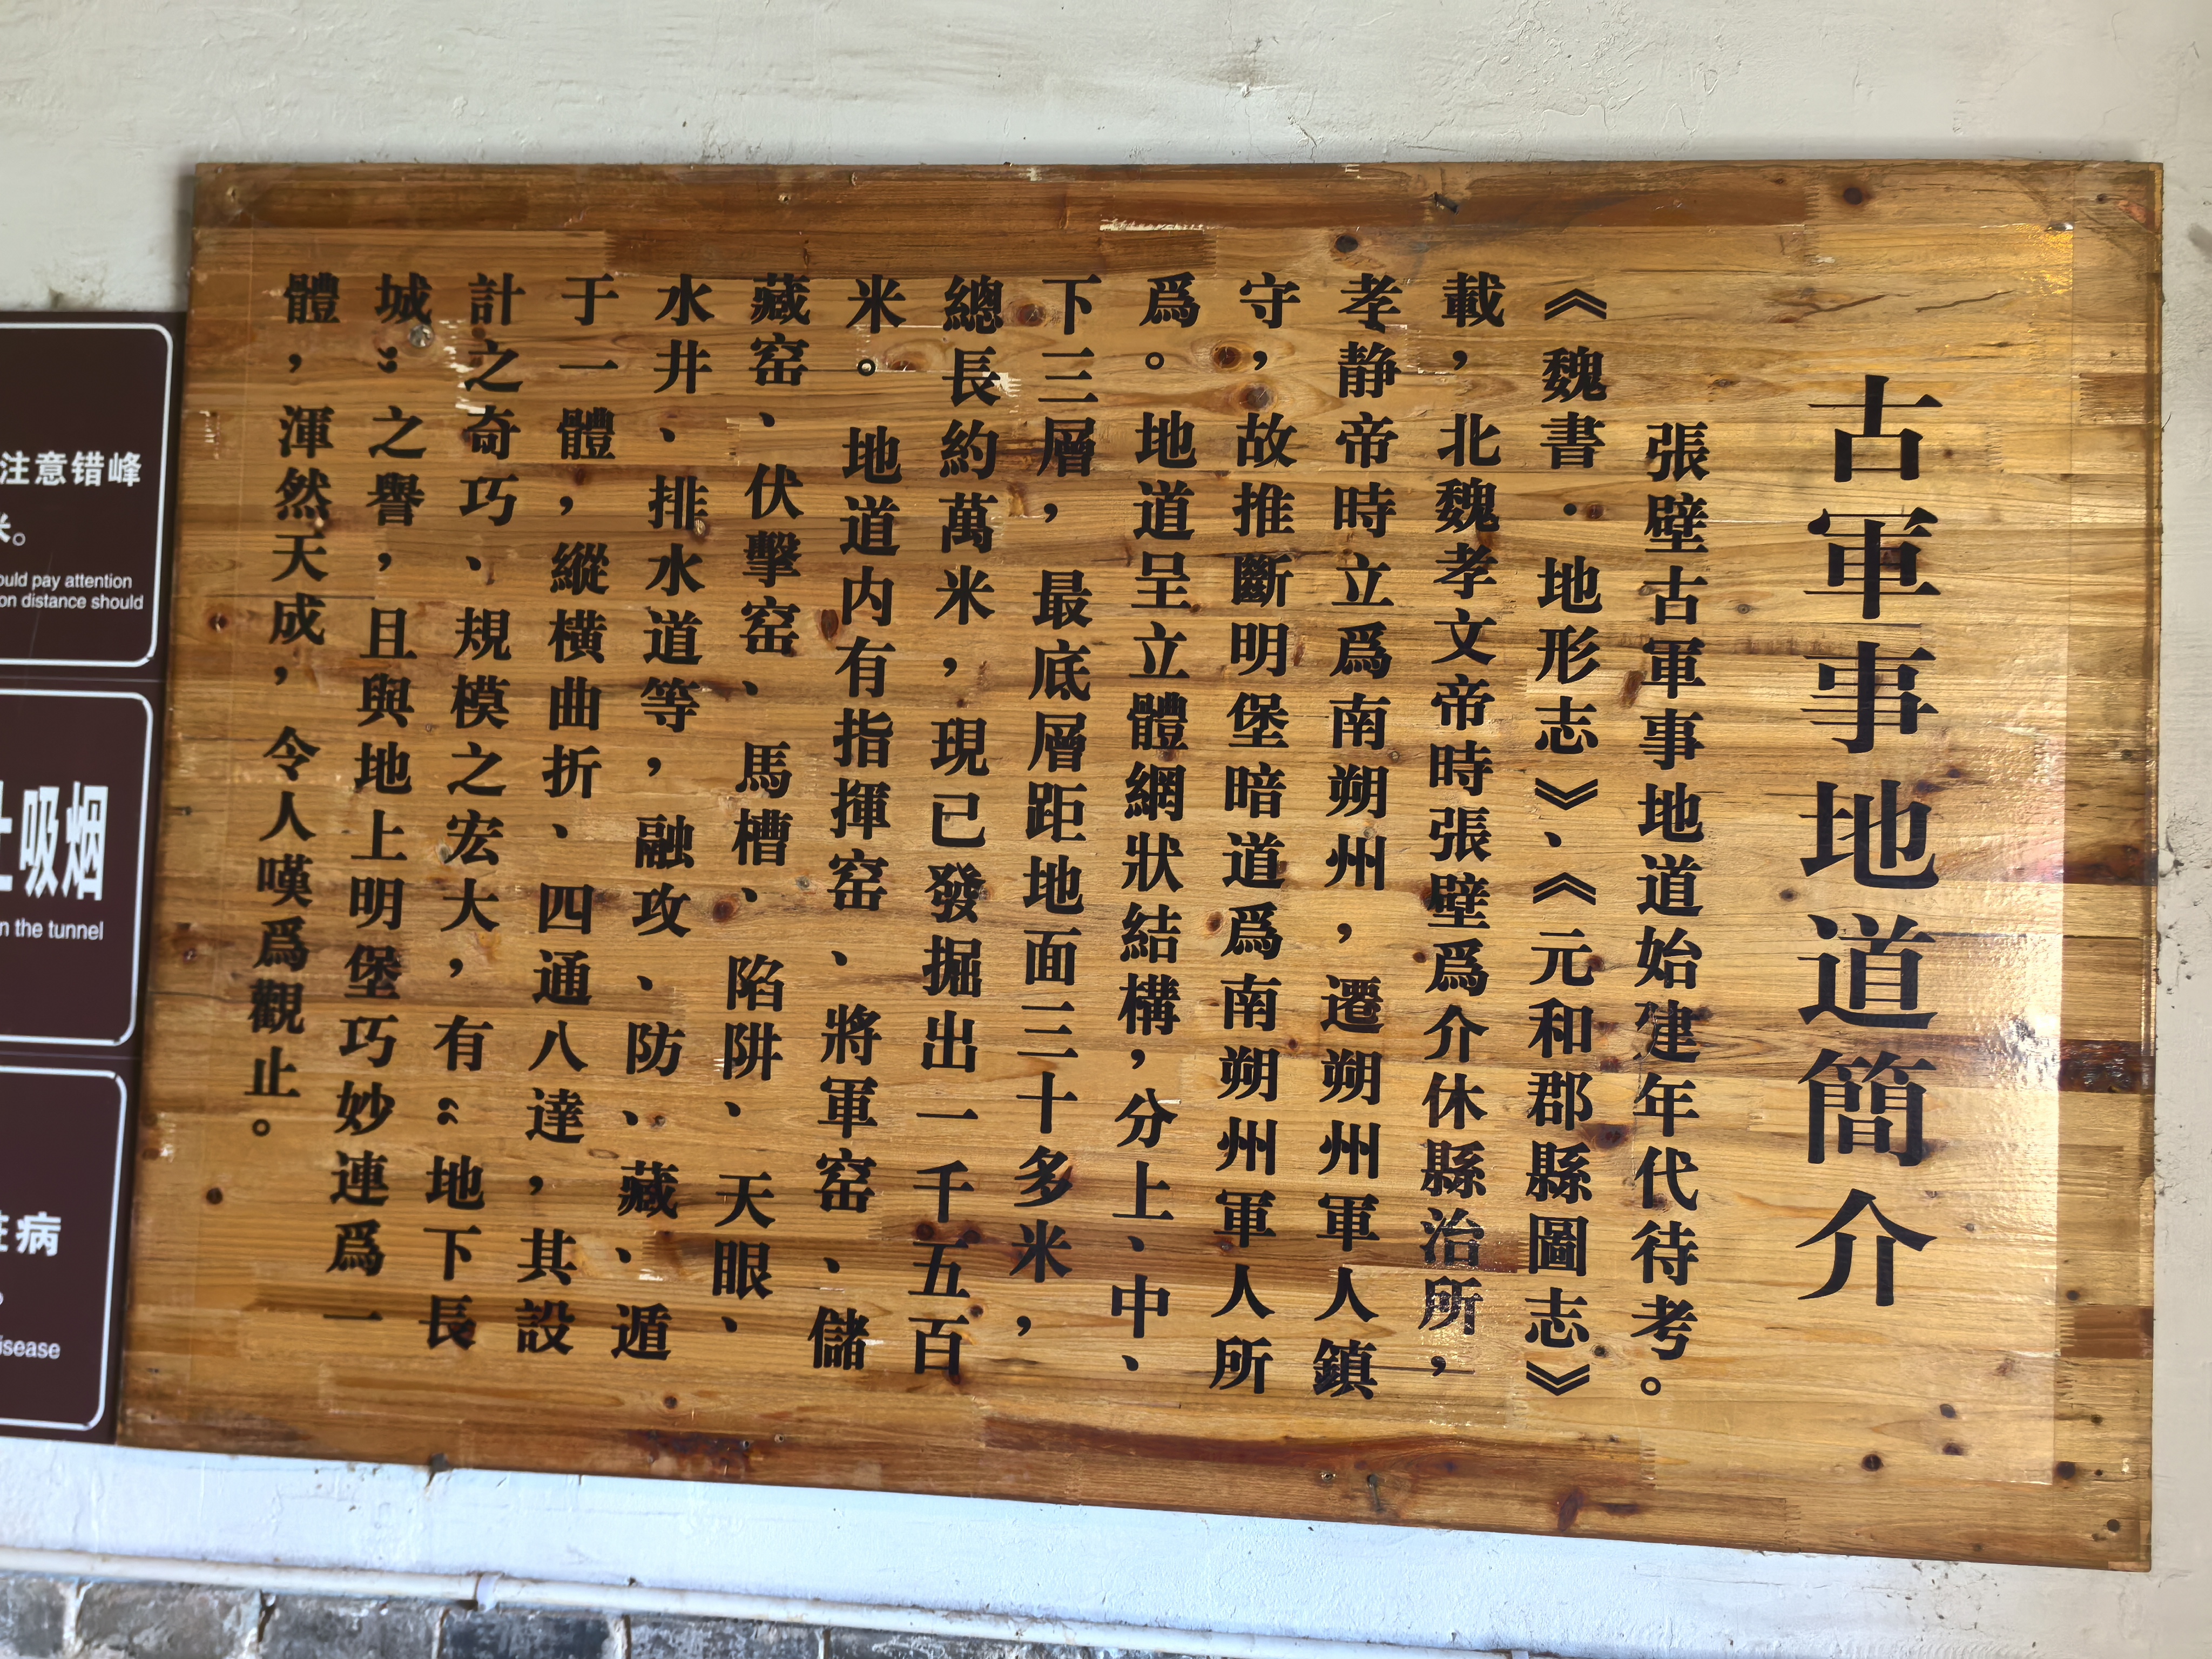 古軍事地道簡介
張壁古軍事地道始建年代待考。
《魏書·地形志》、《元和郡縣圖志》
載，北魏孝文帝時張壁爲介休縣治所，
孝静帝時立爲南朔州，遷朔州軍人鎮
守，故推斷明堡暗道爲南朔州軍人所
爲。地道呈立體網狀結構，分上、中、
下三層，最底層距地面三十多米，
總長約萬米，現已發掘出一千五百
米。地道内有指揮窑、將軍窑、儲
藏窑、伏擊窑、馬槽、陷阱、天眼、
水井、排水道等，融攻、防、藏、遁
于一體，縱横曲折、四通八達，其設
計之奇巧、規模之宏大，有“地下長
城”之譽，且與地上明堡巧妙連爲一
體，渾然天成，令人嘆爲觀止。
注意错峰
米。
ould pay attention
on distance should
止吸烟
n the tunnel
病
isease